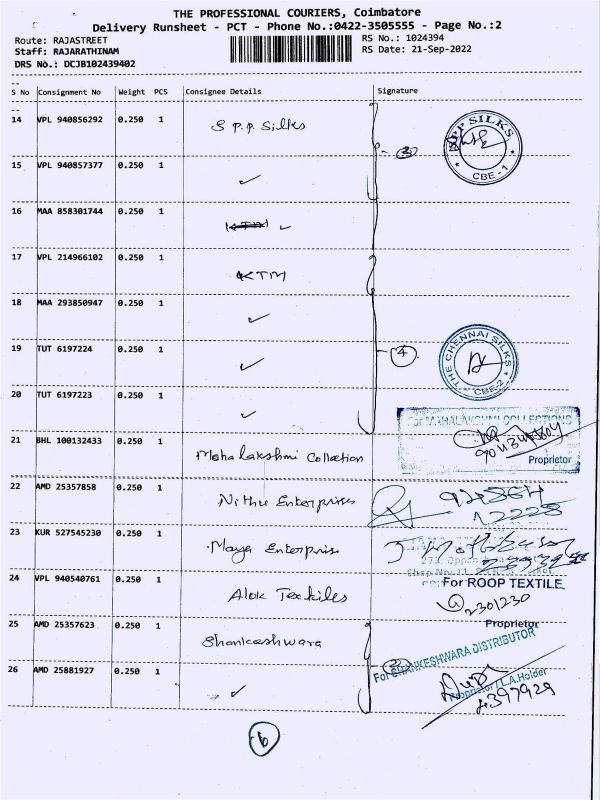 THE PROFESSIONAL COURIERS, Coimbatore
Delivery Runsheet - PCT - Phone No.:0422-3505555 - Page No.:2
Route: RAJASTREET RS No.: 1024394
Staff: RAJARATHINAM RS Date: 21-Sep-2022
DRS No.: DCJB102439402
S No Consignment No Weight PCS Consignee Details Signature
14 VPL 940856292 0.250 1 S P.P Silks
SPP SILKS
* CBE-1 *
15 VPL 940857377 0.250 1 ✓ ③
16 MAA 858301744 0.250 1 KTM ✓
17 VPL 214966102 0.250 1 KTM
18 MAA 293850947 0.250 1 ✓
19 TUT 6197224 0.250 1 ✓ ④
THE CHENNAI SILKS
* CBE-2 *
20 TUT 6197223 0.250 1 ✓
For MAHALAKSHMI COLLECTIONS
21 BHL 100132433 0.250 1 Maha lakshmi Collection
Proprietor
22 AMD 25357858 0.250 1 Nithu Enterprises
23 KUR 527545230 0.250 1 Maya Enterprise
24 VPL 940540761 0.250 1 Alok Textiles
For ROOP TEXTILE
2301230
Proprietor
25 AMD 25357623 0.250 1 Shankeshwara
For SHANKESHWARA DISTRIBUTOR
26 AMD 25881927 0.250 1 ✓ ②
Proprietor / L.A.Holder
4397929
⑥